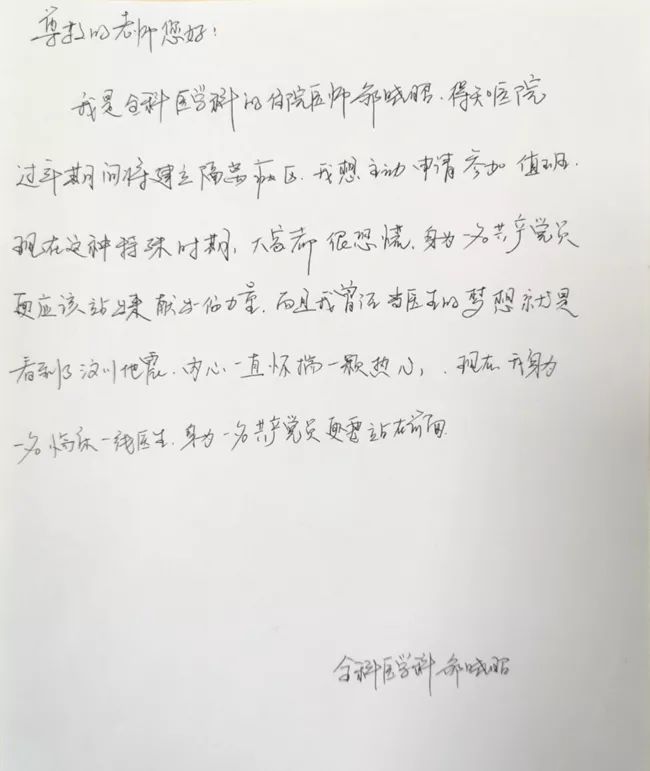 尊敬的老师您好:
我是全科医学科的住院医师郭晓昭.得知医院
过年期间将建立隔离病区.我想主动申请参加值班.
现在这种特殊时期,大家都很恐慌.身为一名共产党员
更应该站出来献出份力量.而且我曾经当医生的梦想就是
看到了汶川地震.内心一直怀揣一颗热心,.现在我身为
一名临床一线医生.身为一名共产党员更要站在前面.
全科医学科 郭晓昭